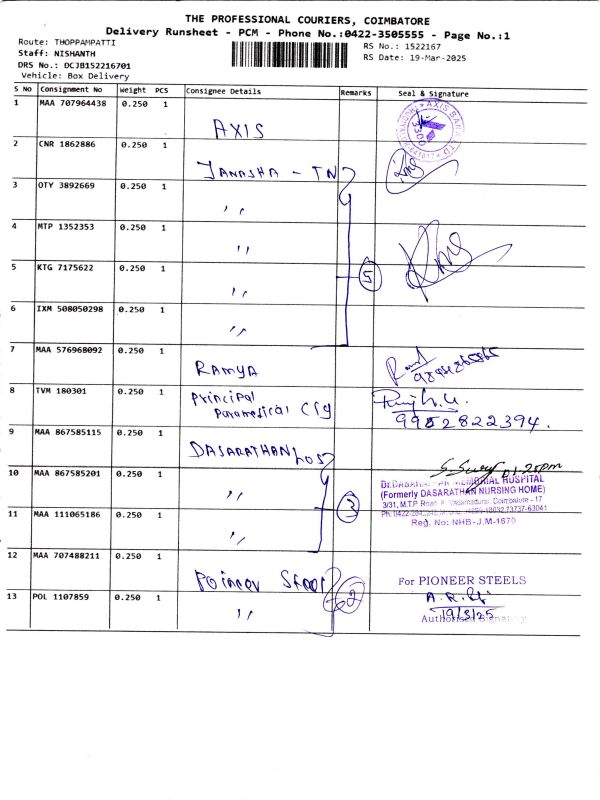 THE PROFESSIONAL COURIERS, COIMBATORE
Delivery Runsheet - PCM - Phone No.:0422-3505555 - Page No.:1
Route: THOPPAMPATTI
Staff: NISHANTH
DRS No.: DCJB152216701
Vehicle: Box Delivery
RS No.: 1522167
RS Date: 19-Mar-2025
S No Consignment No Weight PCS Consignee Details Remarks Seal & Signature
1 MAA 707964438 0.250 1 AXIS
AXIS BANK LTD
2 CNR 1862886 0.250 1 JANASHA - TN
3 OTY 3892669 0.250 1 ,,
4 MTP 1352353 0.250 1 ,,
5 KTG 7175622 0.250 1 ,, 5
6 IXM 508050298 0.250 1 ,,
7 MAA 576968092 0.250 1 RAMYA
8 TVM 180301 0.250 1 Principal
Paramedical Clg
9952822394.
9 MAA 867585115 0.250 1 DASARATHAN HOS
01-20pm
10 MAA 867585201 0.250 1 ,,
MEMORIAL HOSPITAL
(Formerly DASARATHAN NURSING HOME)
Coimbatore - 17
11 MAA 111065186 0.250 1 ,, 3
Reg. No: NHB-J.M-1670
12 MAA 707488211 0.250 1 Poineer Steel
For PIONEER STEELS
13 POL 1107859 0.250 1 ,, 2
19/3/25
Authorised Signatory